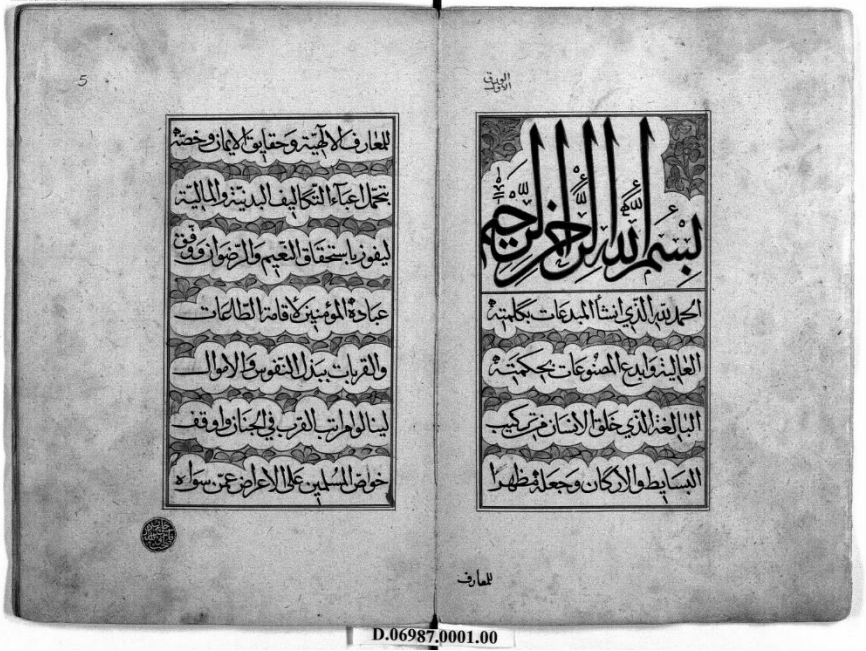 الورق
الأول
بسم الله الرحمن الرحيم
الحمد لله الذي انشأ المبدعات بكلمته
العالية وابدع المصنوعات بحكمته
البالغة الذي خلق الانسان من تركيب
البسايط والاركان وجعله مظهرا
للمعارف
5
للمعارف الالهية وحقايق الايمان وخصه
بتحمل اعباء التكاليف البدنية والمالية
ليفوز باستحقاق النعيم والرضوان ووفق
عباده المؤمنين لاقامة الطاعات
والقربات ببذل النفوس والاموال
لينالوا مراتب القرب في الجنان واوقف
خواص المسلمين على الاعراض عمن سواه
D.06987.0001.00